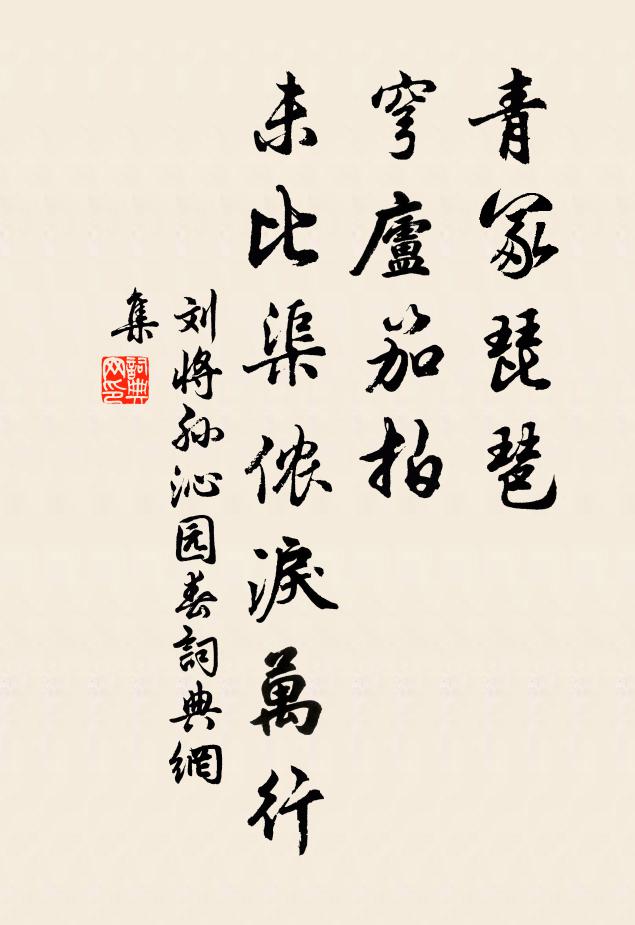 青冢琵琶
穹廬笳拍
未比渠侬淚萬行
刘将孙沁园春詞典網
集
詞典网印